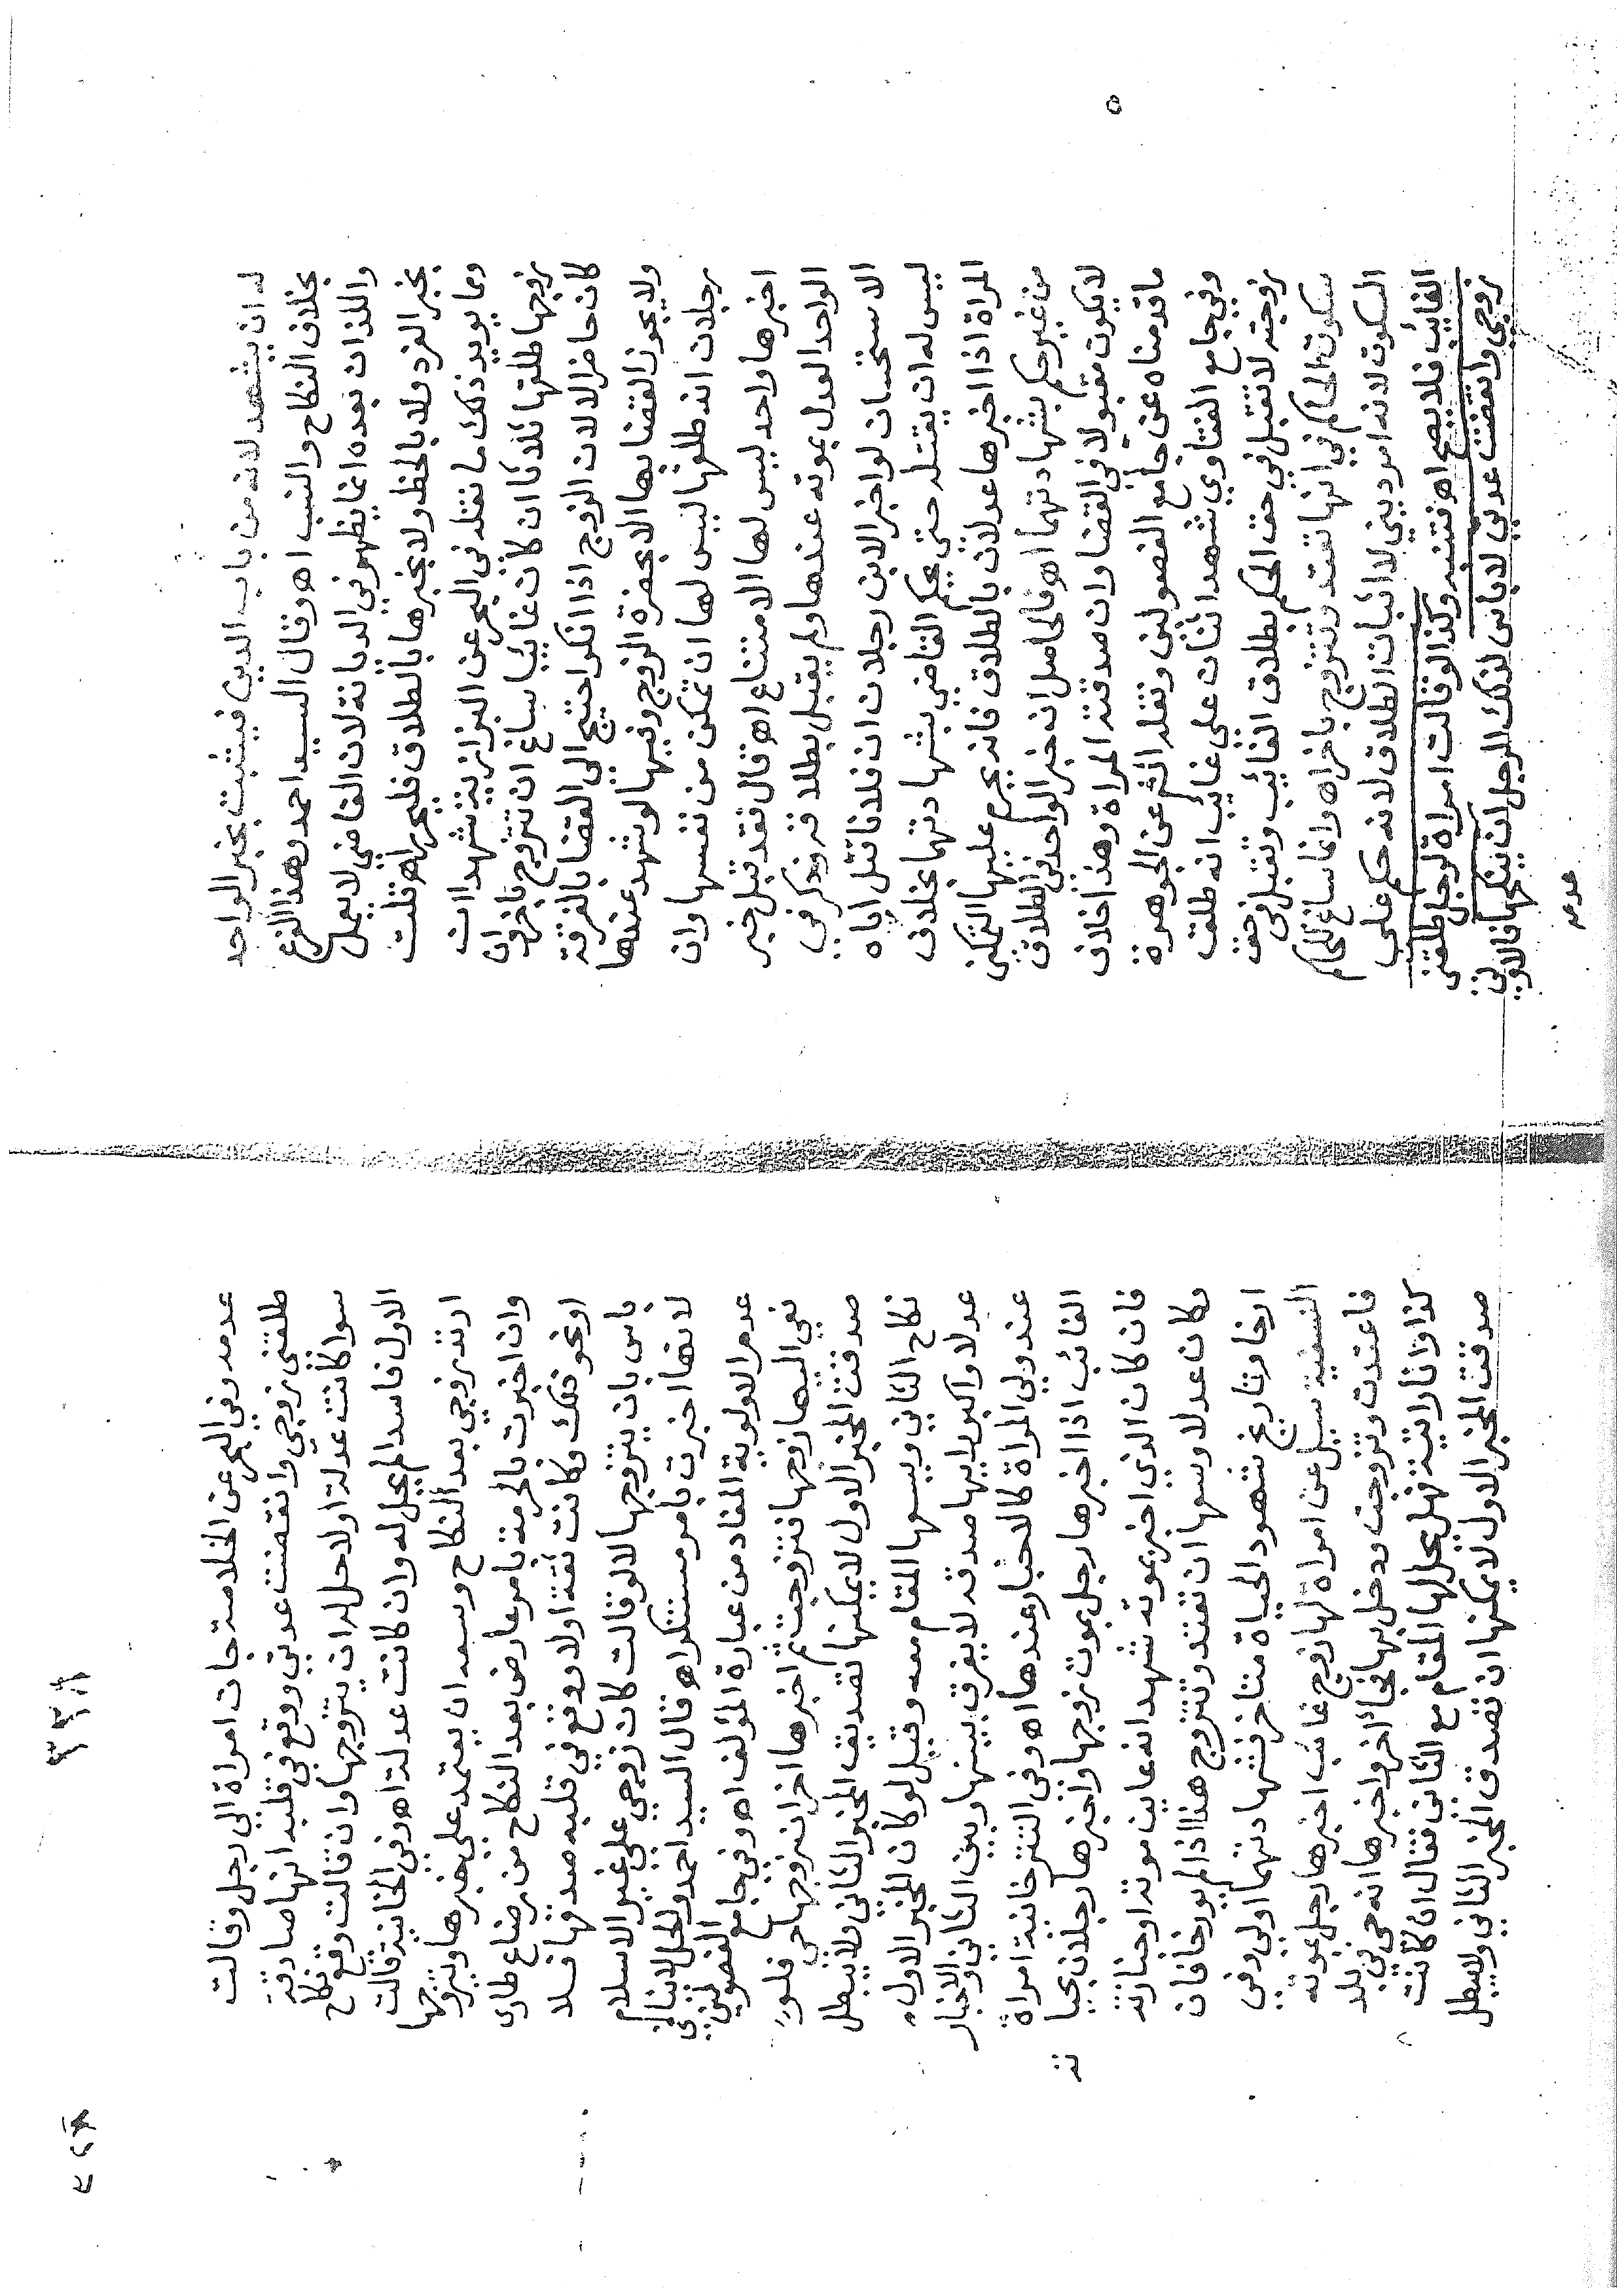 له ان يشهد لانه من باب الدين فيثبت بخبر الواحد
بخلاف النكاح والنسب اه وقال السيد احمد وهذا الفرع
واللذان بعده انما يظهر في الديانة لان القاضي لا يعمل
بخبر الفرد ولا بالخط ولا بخبرها بالطلاق فليحرر اه قلت
ومما يويد ذلك ما نقله في البحر عن البزازية شهدا ان
زوجها طلقها ثلاثا ان كان غائبا ساغ ان تتزوج باخر وان
كان حاضرا لا لان الزوج اذا انكر احتيج الى القضا بالفرقة
ولا يجوز القضا بها الا بحضرة الزوج وفيها لو شهد عندها
رجلان انه طلقها ليس لها ان تمكن من نفسها وان
اخبرها واحد ليس لها الامتناع اه قال فقد قبل خبر
الواحد العدل بموته عندها ولم يقبل بطلاقه وذكر في
الاستحسان لو اخبر الابن رجلان ان فلانا قتل اباه
ليس له ان يقتله حتى يحكم القاضي بشهادتهما بخلاف
المراة اذا اخبرها عدلان بالطلاق فانه يحرم عليها التمكين
من غير حكم بشهادتهما اه فالحاصل انه خبر الواحد في الطلاق
لا يكون مقبولا في القضا وان صدقته المراة وهذا خلاف
ما قدمناه عن جامع الفصولين ونقله ائثم عن الجوهرة
وفي جامع الفتاوي شهد اثنان على غائب انه طلق
زوجته لا تقبل في حق الحكم بطلاق الغائب وتقبل في حق
سكوت الحاكم في انها تعتد وتتزوج باخر اه وانما ساغ للحاكم
السكوت لانه امر ديني لا اثبات الطلاق لانه حكم على
الغايب فلا يصح اه فتنبه وكذا لو قالت امراة لرجل طلقني
زوجي وانقضت عدتي لا باس لذلك الرجل ان ينكحها فالاولى
عدمه
عدمه وفي البحر عن الخلاصة جات امراة الى رجل وقالت
طلقني زوجي وانقضت عدتي ووقع في قلبه انها صادقة
سوا كانت عدلة او لا حل له ان يتزوجها وان قالت وقع نكاح
الاول فاسدا لم يحل له وان كانت عدلة اه وفي الخانية قالت
ارتد زوجي بعد النكاح وسعه ان يعتمد على خبرها ويتزوجها
وان اخبرت بالحرمة بامر عارض بعد النكاح من رضاع طارى
او نحو ذلك وكانت ثقة او لا ووقع في قلبه صدقها فلا
باس بان يتزوجها لا لو قالت كان زوجي على غير الاسلام
لانها اخبرت بامر مستنكر اه قال السيد احمد والحل لا ينافي
عدم الاولوية المفاد من عبارة المؤلف اه وفي جامع الفصولين
نعي اليها زوجها فتزوجت ثم اخبرها اخر ان زوجها حي فلو
صدقت المخبر الاول لا يمكنها تصديق المخبر الثاني ولا يبطل
نكاح الثاني ويسعها المقام معه وقيل لو كان المخبر الاول
عدلا واكبر رايها صدقه لا يفرق بينها وبين الثاني والاخبار
عند ولي المراة كالاخبار عندها اه وفي التترخانية امراة
الغائب اذا اخبرها رجل بموت زوجها واخبرها رجلان بحيا
ته
فان كان الذي اخبر بموته شهد انه عاين موته او جنازته
وكان عدلا وسعها ان تعتد وتتزوج هذا اذا لم يورخا فان
ارخا وتاريخ شهود الحياة متاخر فشهادتهما اولى وفى
النسفية سيل عن امراة لها زوج غائب اخبرها رجل بموته
فاعتدت وتزوجت ودخل بها فجا اخر واخبرها انه حي في بلد
كذا وانا رايته فهل يحل لها المقام مع الثاني فقال ان كانت
صدقت المخبر الاول لا يمكنها ان تصدق المخبر الثاني ولا يبطل